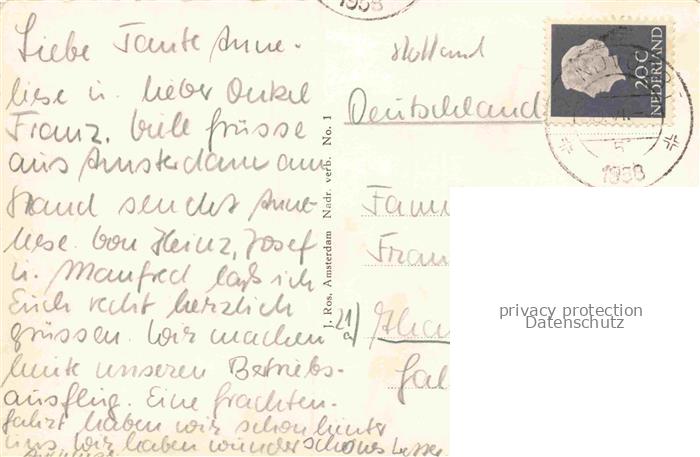 Liebe Tante Anne-
liese u. lieber Onkel
Franz. Viele grüsse
aus Amsterdam am
Strand sendet Anne-
liese. Von Heinz, Josef
u. Manfred laß ich
Euch recht herzlich
grüssen. Wir machen
heute unseren Betriebs-
ausflug. Eine Grachten-
fahrt haben wir schon hinter
uns. Wir haben wunderschönes
J. Ros, Amsterdam Nadr. verb. No. 1
1958
Holland
Deutschland
20 C
NEDERLAND
1958
Fam
Fran
21
privacy protection
Datenschutz